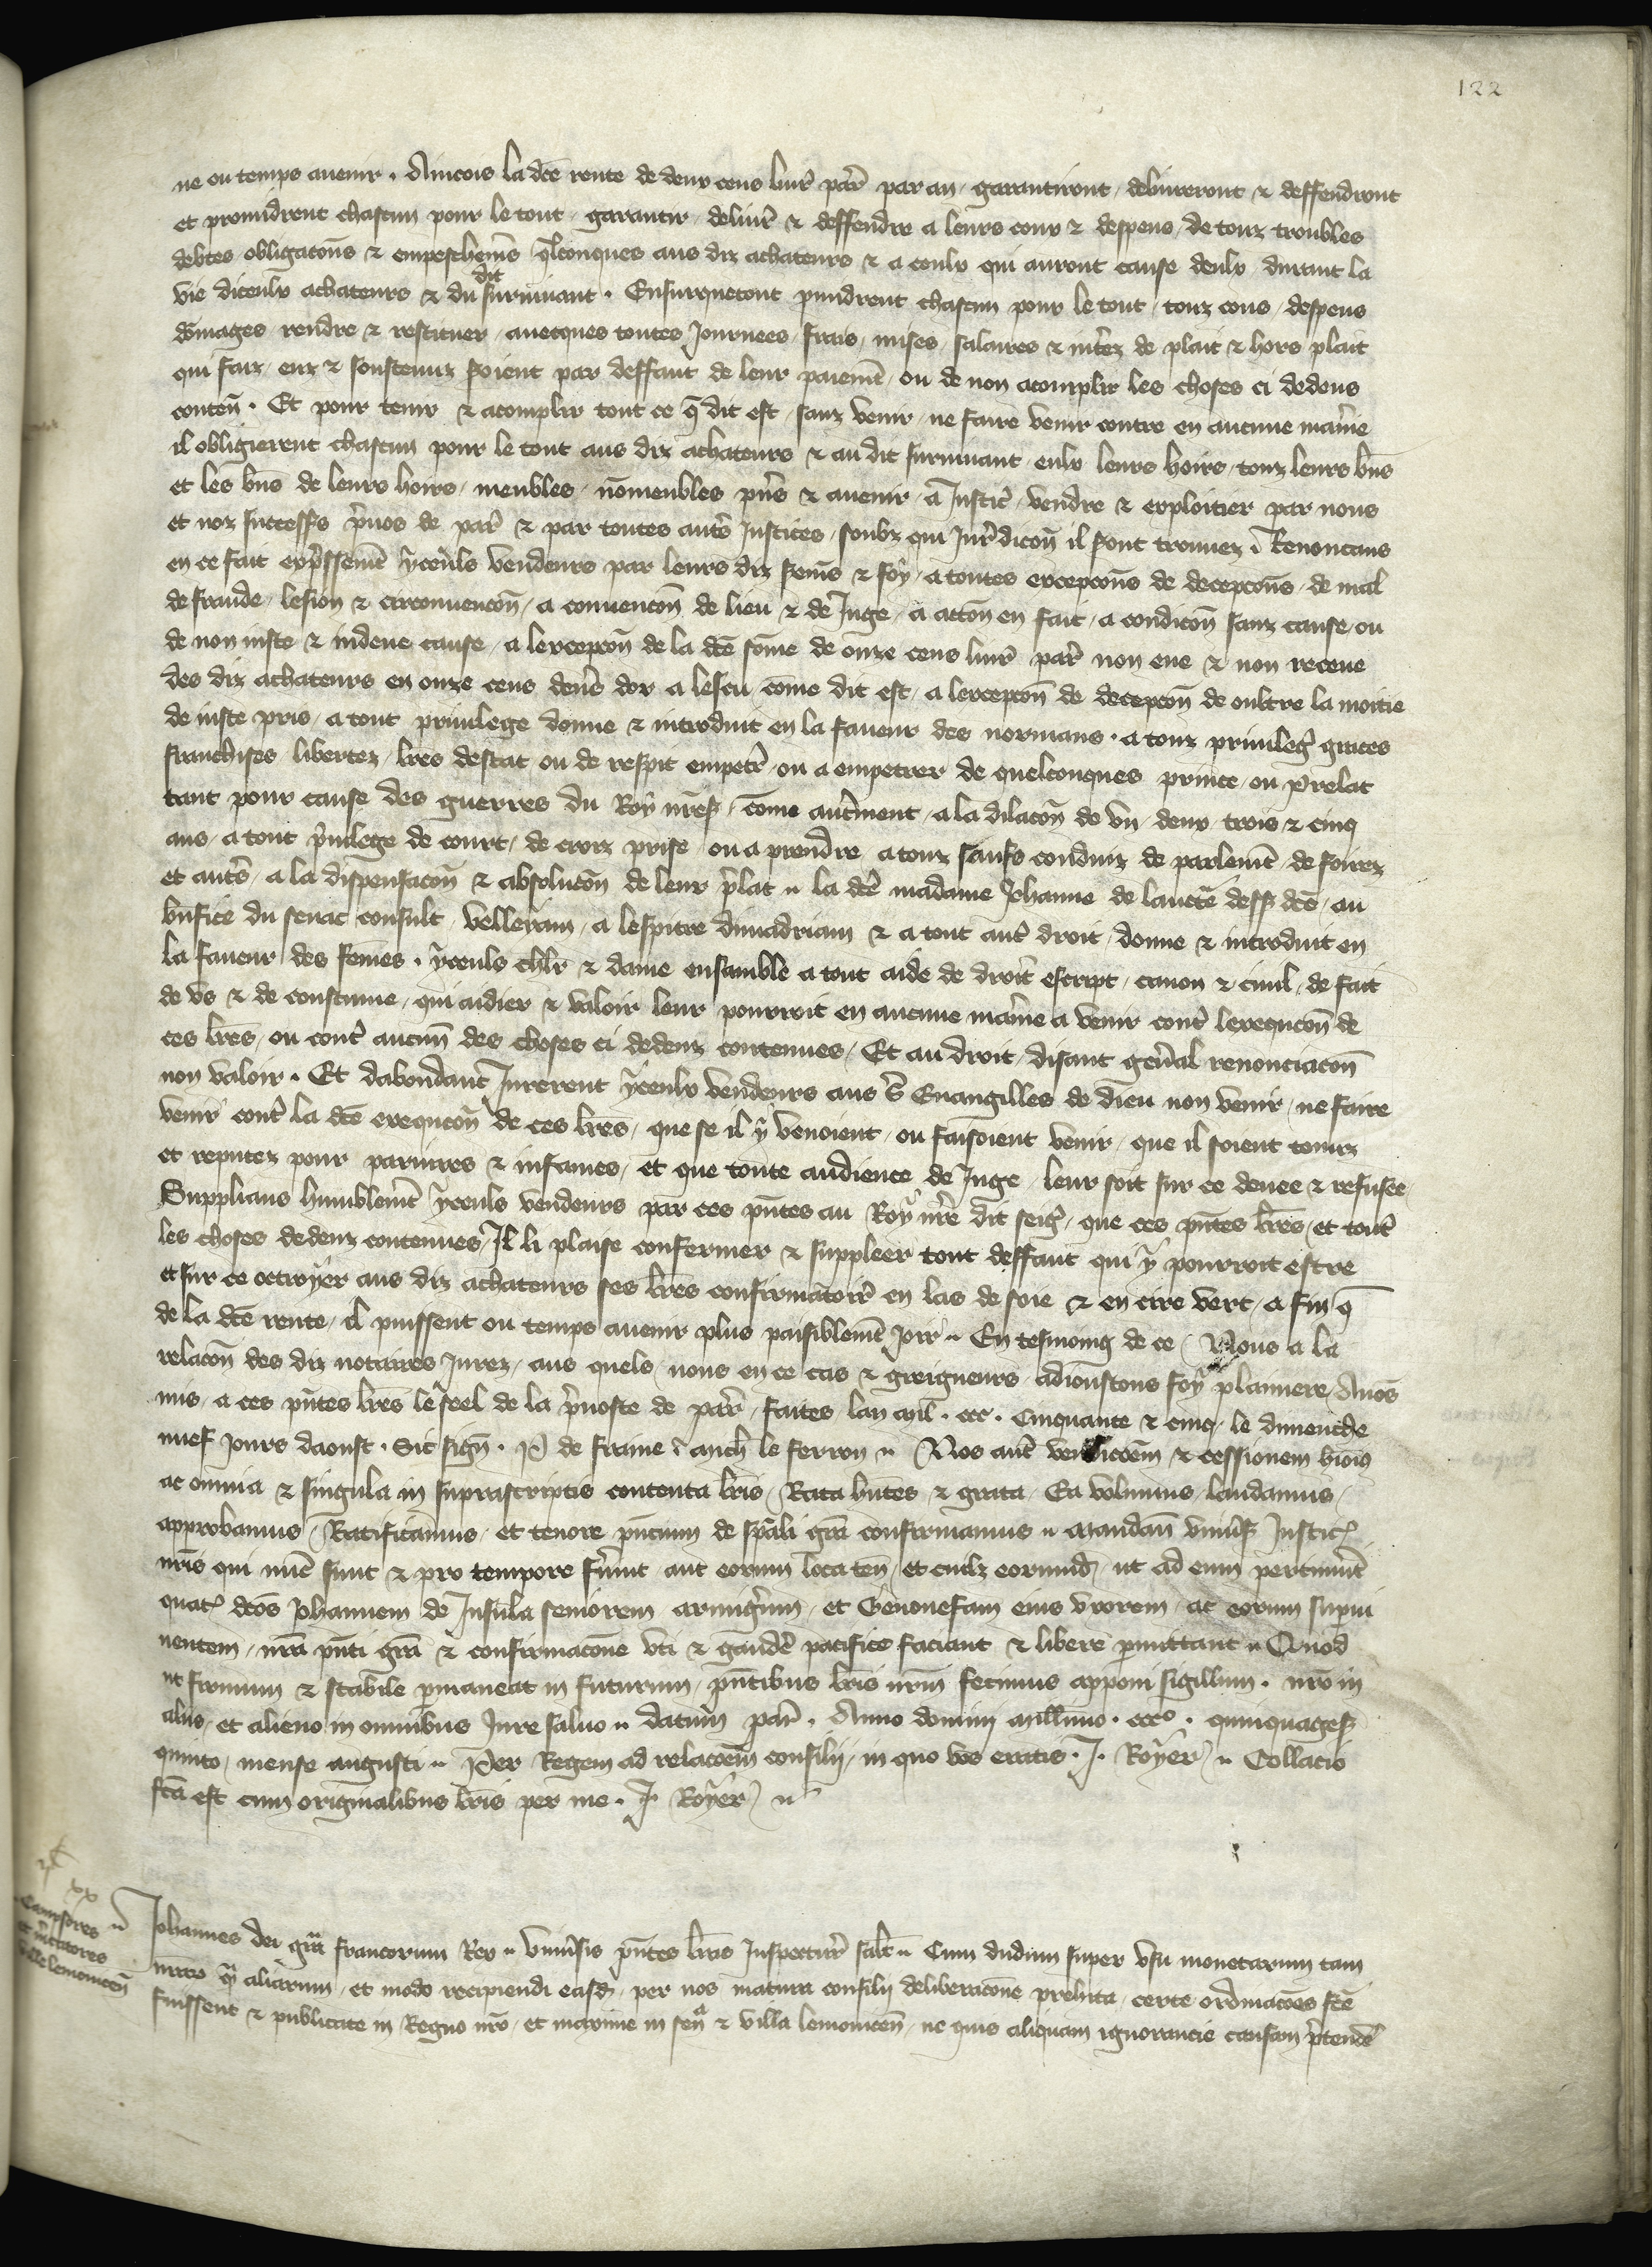 122
ne ou temps auenir . Aincois la dce rente de deux cens liur par par an garantiront deliureront & deffendront
et promidrent chascun pour le tout garantir deliurer & deffendre a leurs coux & despens de touz troubles
debtes obligacons & empeschems qlconques aus diz achateurs & a ceulx qui auront cause deulx durant la
vie diceulx achateurs & du dit suruiuant . Ensurquetout pmidrent chascun pour le tout touz cous despens
domages rendre & restituer auecques toutes Journees frais mises salaires & interez de plait & hors plait
qui faiz euz & soustenuz seroient par deffaut de leur paiemt ou de non acomplir les choses ci dedens
conten . Et pour tenir & acomplir tout ce q dit est sanz venir ne faire venir contre en aucune maniere
il obligierent chascun pour le tout aus diz achateurs & au dit suruiuant eulx leurs hoirs touz leurs bns
et les bns de leurs hoirs meubles nomeubles pns & auenir a Justic vendre & exploitier par nous
et noz successrs preuos de par & par toutes autres Justices soubz qui Juridicon il seront trouuez Renoncans
en ce fait expressement yceuls vendeurs par leurs diz serms & foy a toutes excepcons de decepcons de mal
de fraude lesion & circonuencon a conuencon de lieu & de Juge a accon en fait a condicon sanz cause ou
de non iuste & indeue cause a lexcepcon de la dce some de onze cens liur par non eue & non receue
des diz achateurs en onze cens deners dor a lescu come dit est a lexcepcon de decepcon de oultre la moitie
de iuste pris a tout priuilege donne & introduit en la faueur des normans . a touz priuileg graces
franchises libertez lres destat ou de respit empetr ou a empetrer de quelconques prince ou prelat
tant pour cause des guerres du Roy nres come autrement a la dilacon de vn deux trois & cinq
ans a tout preuilege de court de croix prise ou a prendre a touz saufs conduiz de parlemt de foirez
et autres a la dispensacon & absolucon de leur prelat la dce madame Jehanne de dess dce au
bnfice du senat consult velleyam a lespitre diuiadriam & a tout autre droit donne & introduit en
la faueur des femes . yceuls chlr & dame ensamble a tout aide de droit escript canon & ciuil de fait
de vs & de coustume qui aidier & valoir leur pourroit en aucune maniere a venir contre lexequcon de
ces lres ou contre aucun des choses ci dedenz contenues Et au droit disant general renonciacon
non valoir . Et dabondant Jurerent yceulx vendeurs aus s Euangilles de dieu non venir ne faire
venir contre la dce exequcon de ces lres que se il y venoient ou faisoient venir que il soient tenuz
et reputez pour pariures & infames et que toute audience de Juge leur soit sur ce denee & refusee
Supplians humblemt yceuls vendeurs par ces pntes au Roy nre dit seigr que ces pntes lres et toutes
les choses dedenz contenues Il li plaise confermer & suppleer tout deffaut qui y pourroit estre
et sur ce octroyer aus diz achateurs ses lres confirmatoires en las de soie & en cire vert a fin q
de la dce rente il puissent ou temps auenir plus paisiblemt joir En tesmoing de ce Nous a la
relacon des diz notaires Jurez aus quels nous en ce cas & greigneurs adioustons foy planiere Auos
mis a ces pntes lres le seel de la preuoste de par faites lan mil . ccc . Cinquante & cinq le dimenche
nuef jours daoust . Sic sign . P de fraine . le ferron Nos aut vendicoem & cessionem hmoi
ac omnia & singula in suprascriptis contenta lris Rata hntes & grata Ea volumus laudamus
approbamus Ratificamus et tenore pncium de spali gra confirmamus Mandan vniuers Justic
nris qui nuc sunt & pro tempore fuerint aut eorum loca ten et cuilz eorumd ut ad eum pertinuit
quat dcos Johannem de Insula seniorem armigerum et Genouefam eius vxorem ac eorum superui
uentem nra pnti gra & confirmacone vti & gaudere pacifice faciant & libere pmittant Quod
ut firmum & stabile pmaneat in futurum pntibus lris nrm fecimus apponi sigillum . nro in
aliis et alieno in omnibus Jure saluo datum par . Anno domini millimo . ccco . quinquages
quinto mense augusti Per Regem ad relacoem consilij in quo vos eratis . J . Royer Collacio
fca est cum originalibus lris per me . J . Royer
xx
Campsores
et mcatores
ville lemouicen
Johannes dei gra francorum Rex Vniuersis pntes lras Inspectur salt Cum dudum super vsu monetarum tam
nrar q aliarum et modo recipiendi easd per nos matura consilij deliberacone prehita certe ordinacoes fce
fuissent & publicate in Regno nro et maxime in sen & villa lemouicen ne quis aliquam ignorancie causam pretendere